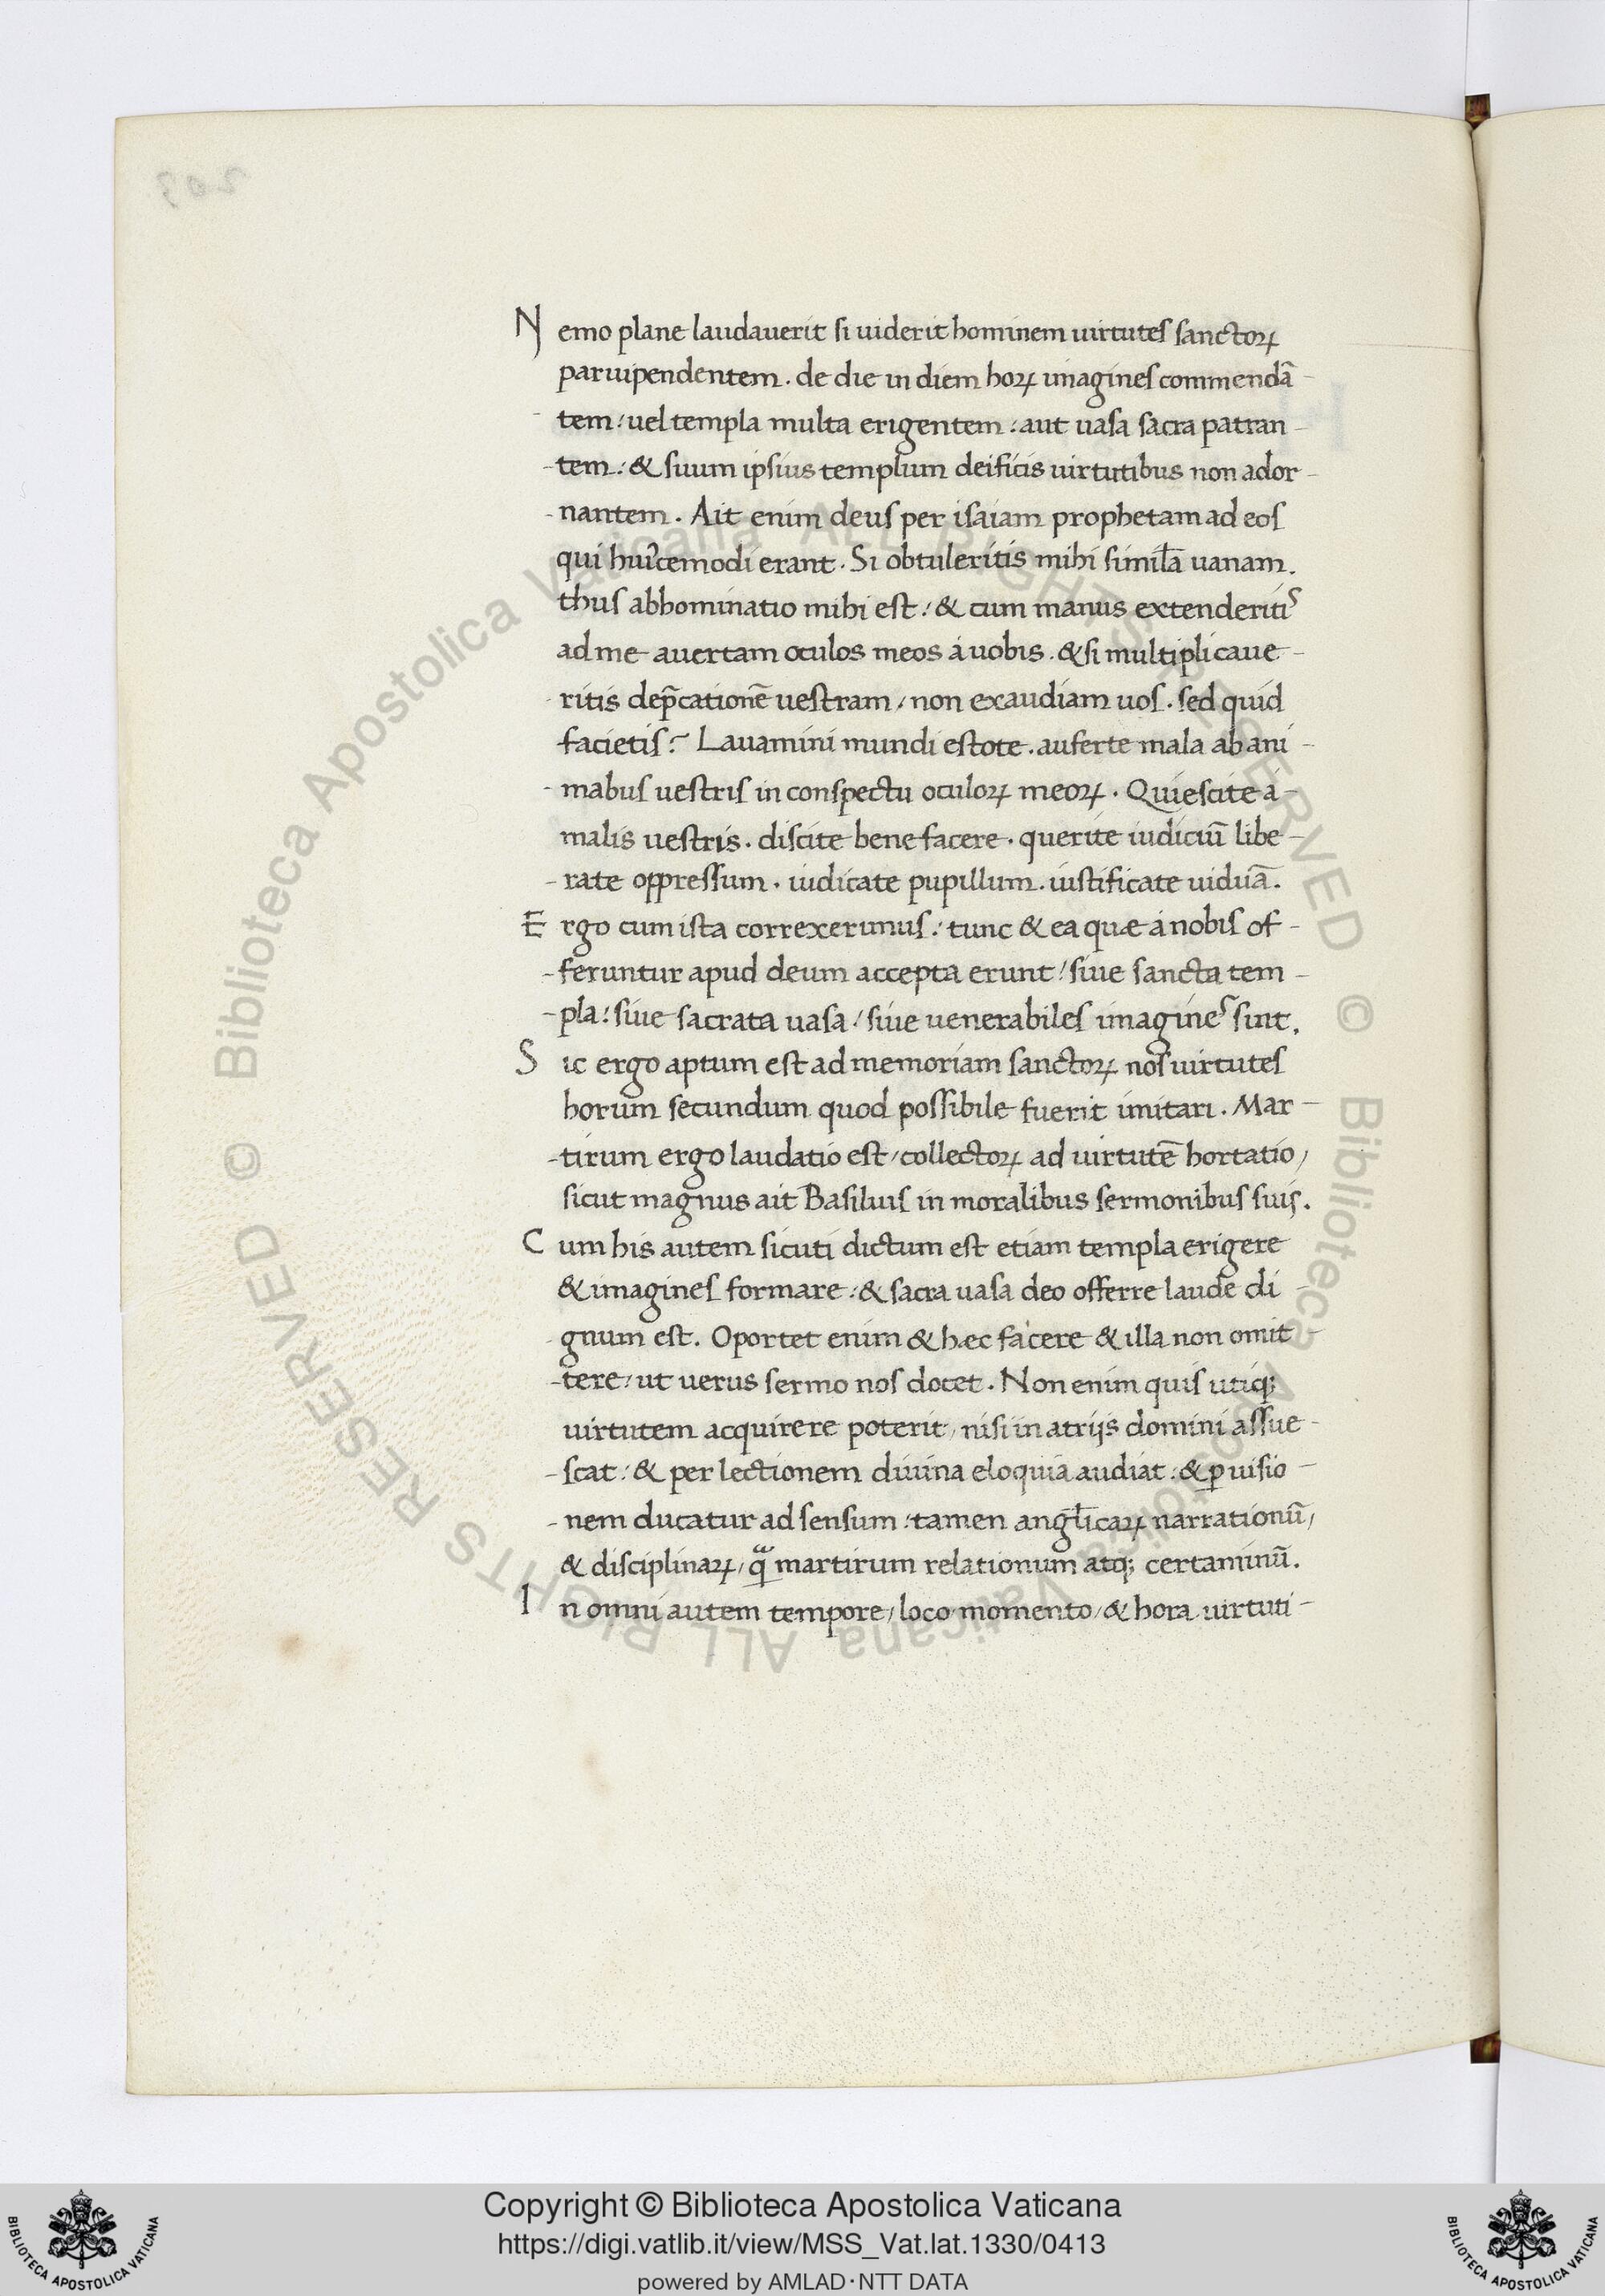 203
Nemo plane laudauerit si uiderit hominem uirtutes sanctoꝝ
paruipendentem. de die in diem hoꝝ imagines commendā-
tem: uel templa multa erigentem: aut uasa sacra patran-
-tem: & suum ipsius templum deificis uirtutibus non ador-
-nantem. Ait enim deus per isaiam prophetam ad eos
qui huiꝰcemodi erant. Si obtuleritis mihi similā uanam.
thus abhominatio mihi est: & cum manus extenderitis
ad me auertam oculos meos á uobis. & si multiplicaue-
-ritis dep̄cationē uestram, non exaudiam uos. sed quid
facietis? Lauamini mundi estote. auferte mala ab ani-
-mabus uestris in conspectu oculoꝝ meoꝝ. Quiescite á-
malis uestris. discite bene facere. querite iudiciū libe-
-rate oppressum. iudicate pupillum. iustificate uiduā.
Ergo cum ista correxerimus: tunc & ea quæ á nobis of-
-feruntur apud deum accepta erunt/ siue sancta tem-
-pla: siue sacrata uasa/ siue uenerabiles imagines sint.
Sic ergo aptum est ad memoriam sanctoꝝ nos uirtutes
horum secundum quod possibile fuerit imitari. Mar-
-tirum ergo laudatio est/ collectoꝝ ad uirtutē hortatio/
sicut magnus ait Basilius in moralibus sermonibus suis.
Cum his autem sicuti dictum est etiam templa erigere
& imagines formare: & sacra uasa deo offerre laude di-
-gnum est. Oportet enim & hæc facere & illa non omit-
-tere/ ut uerus sermo nos docet. Non enim quis utiq;
uirtutem acquirere poterit, nisi in atrijs domini assue-
-scat: & per lectionem diuina eloquia audiat: & ꝑ uisio-
-nem ducatur ad sensum: tamen angl̄icaꝝ narrationū/
& disciplinaꝝ/ qͣꝫ martirum relationum atq; certaminū.
In omni autem tempore/ loco momento/ & hora uirtuti-
© Biblioteca Apostolica Vaticana ALL RIGHTS RESERVED © Biblioteca Apostolica Vaticana ALL RIGHTS RESERVED
BIBLIOTECA APOSTOLICA VATICANA
Copyright © Biblioteca Apostolica Vaticana
https://digi.vatlib.it/view/MSS_Vat.lat.1330/0413
powered by AMLAD·NTT DATA
BIBLIOTECA APOSTOLICA VATICANA